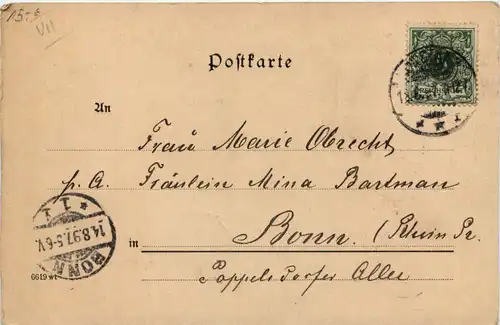 15.-
VII
Postkarte
An
Frau Marie Obrecht
p. A. Fräulein Mina Bartman
in Bonn. (Rhein Pr.
Poppelsdorfer Allee
BONN
14.8.97.5-6V.
* 1 1
6619 wt